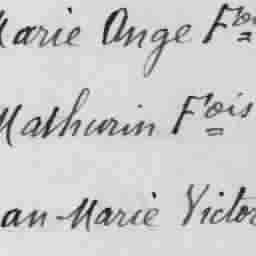 Marie Ange Fçois
Mathurin Fçois
an-Marie Victor